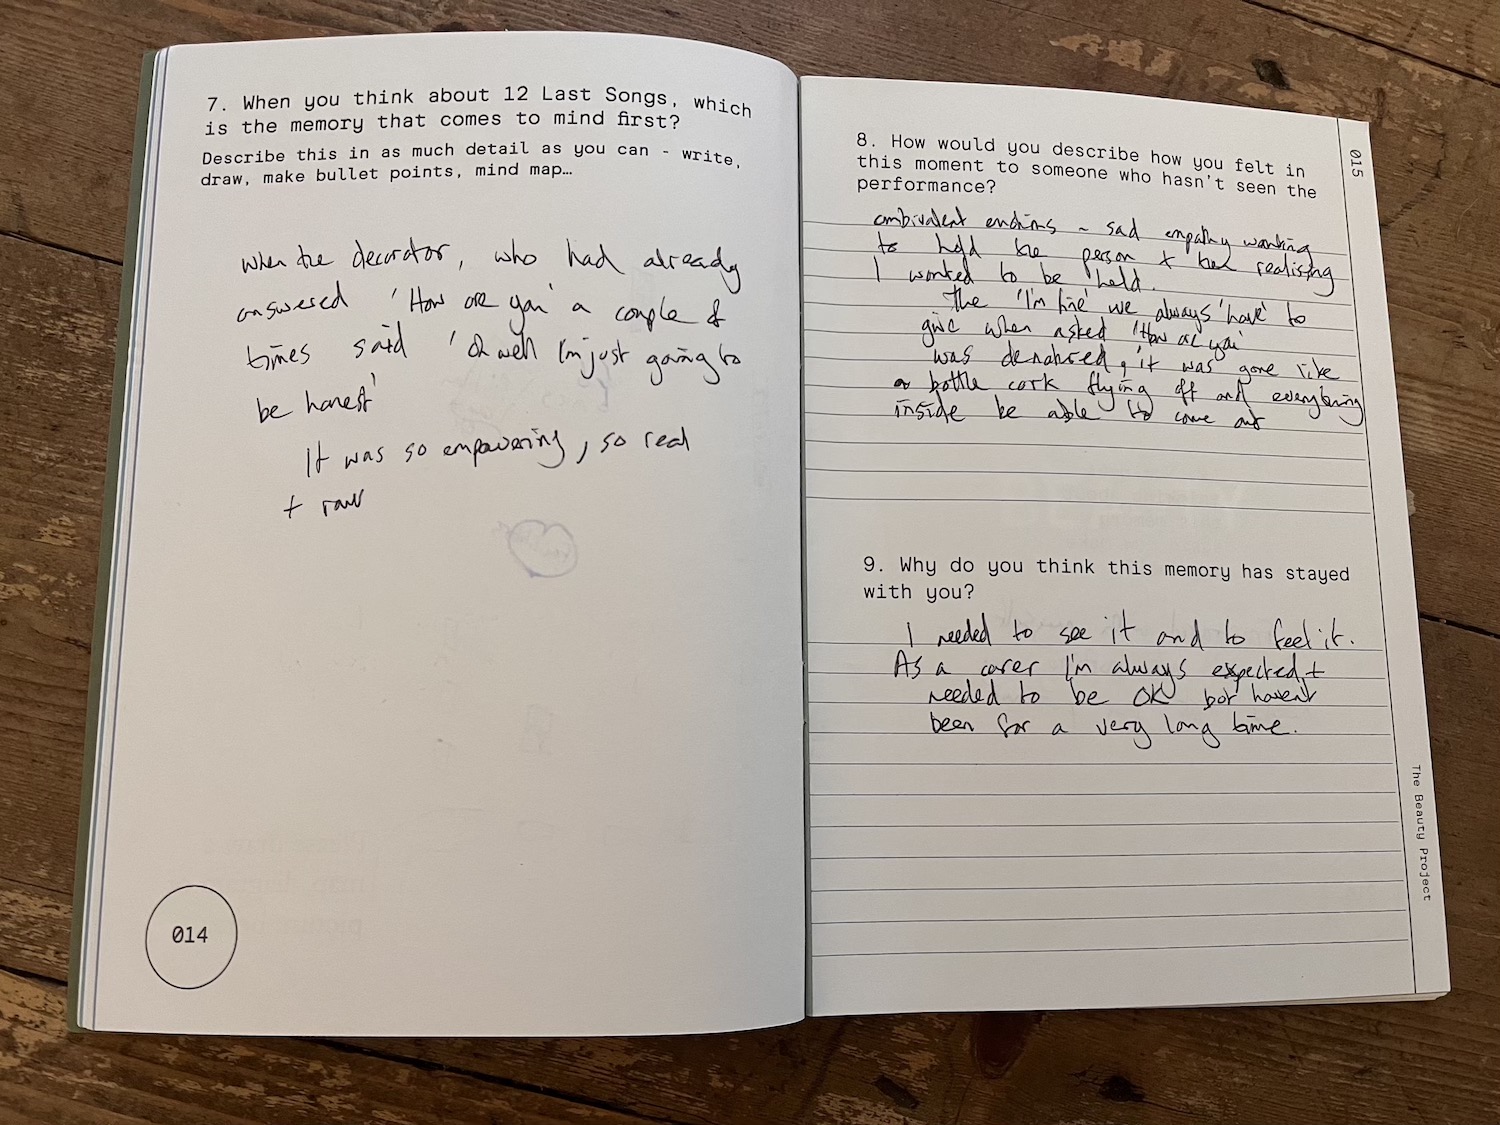 7. When you think about 12 Last Songs, which
is the memory that comes to mind first?
Describe this in as much detail as you can - write,
draw, make bullet points, mind map…
when the decorator, who had already
answered 'How are you' a couple of
times said 'Oh well I'm just going to
be honest'
It was so empowering, so real
+ raw
014
015
8. How would you describe how you felt in
this moment to someone who hasn't seen the
performance?
ambivalent - sad empathy wanting
to hold the person + then realising
I wanted to be held.
The 'I'm fine' we always 'have' to
give when asked 'How are you'
was, it was gone like
a bottle cork flying off and everything
inside be able to come out
9. Why do you think this memory has stayed
with you?
I needed to see it and to feel it.
As a carer I'm always expected +
needed to be OK but havent
been for a very long time.
The Beauty Project